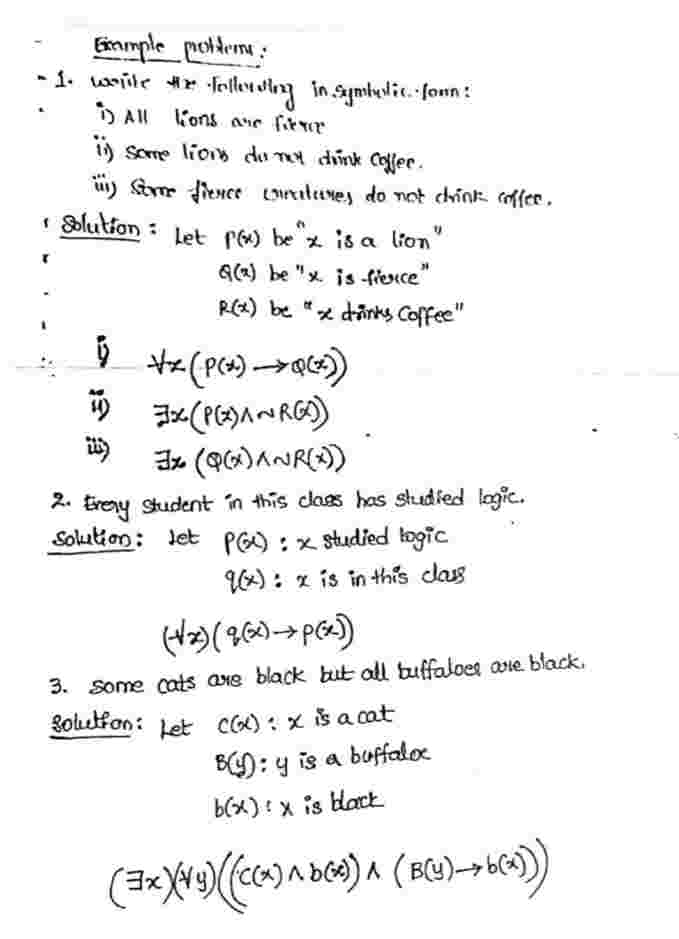 Example problems:
1. Write the following in symbolic form:
i) All lions are fierce
ii) Some lions do not drink coffee.
iii) Some fierce creatures do not drink coffee.
Solution: Let P(x) be "x is a lion"
Q(x) be "x is fierce"
R(x) be "x drinks Coffee"
i) ∀x(P(x)→Q(x))
ii) ∃x(P(x)∧~R(x))
iii) ∃x (Q(x)∧~R(x))
2. Every student in this class has studied logic.
Solution: Let P(x) : x studied logic
q(x) : x is in this class
(∀x)(q(x)→p(x))
3. Some cats are black but all buffaloes are black.
Solution: Let C(x) : x is a cat
B(y) : y is a buffaloe
b(x) : x is black
(∃x)(∀y)((C(x)∧b(x))∧(B(y)→b(x)))